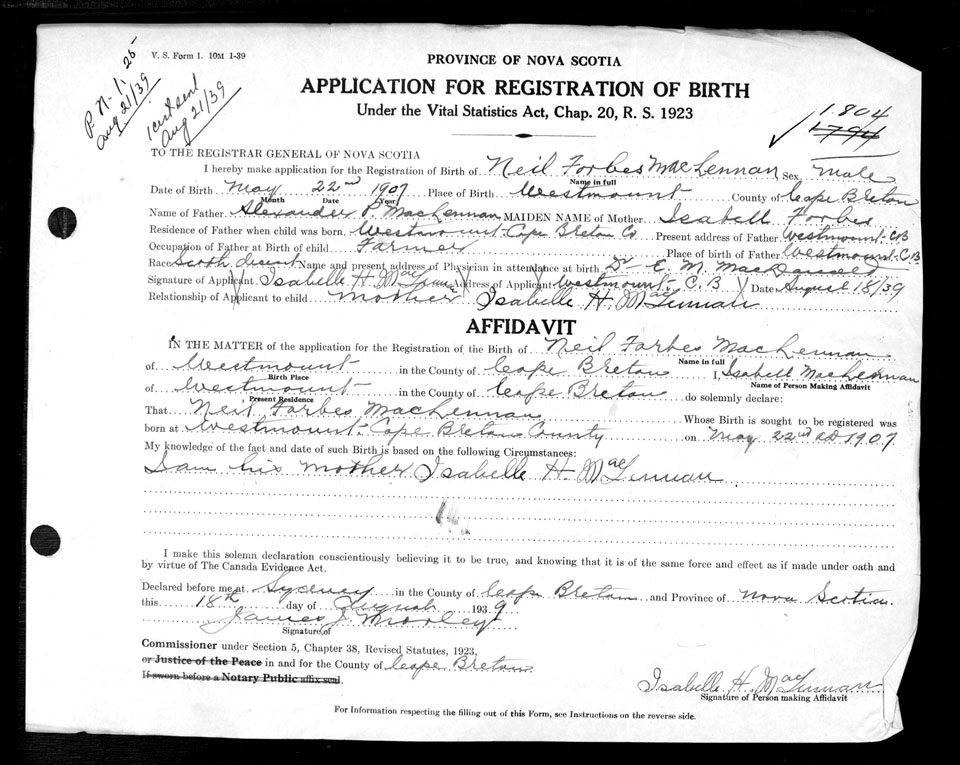 V. S. Form 1. 10M 1-39
P. N. 1. 25
Aug 21/39
1 cert sent
Aug 21/39
PROVINCE OF NOVA SCOTIA
APPLICATION FOR REGISTRATION OF BIRTH
Under the Vital Statistics Act, Chap. 20, R. S. 1923
1.804
1794
TO THE REGISTRAR GENERAL OF NOVA SCOTIA
I hereby make application for the Registration of Birth of Neil Forbes MacLennan Sex Male
Name in full
Date of Birth May 22nd 1907 Place of Birth Westmount County of Cape Breton
Month Date Year
Name of Father Alexander P. MacLennan MAIDEN NAME of Mother Isabell Forbes
Residence of Father when child was born Westmount Cape Breton Co Present address of Father Westmount C.B
Occupation of Father at Birth of child Farmer Place of birth of Father Westmount C.B
Race Scotch descent Name and present address of Physician in attendance at birth Dr C. M. MacDonald
Signature of Applicant Isabelle H. MacLennan Address of Applicant Westmount, C. B Date August 18/39
Relationship of Applicant to child Mother Isabelle H. MacLennan
AFFIDAVIT
IN THE MATTER of the application for the Registration of the Birth of Neil Forbes MacLennan
Name in full
of Westmount in the County of Cape Breton I, Isabell MacLennan
Birth Place Name of Person Making Affidavit
of Westmount in the County of Cape Breton do solemnly declare:
Present Residence
That Neil Forbes MacLennan Whose Birth is sought to be registered was
born at Westmount Cape Breton County on May 22nd AD 1907
My knowledge of the fact and date of such Birth is based on the following Circumstances:
I am his mother Isabelle H. MacLennan
I make this solemn declaration conscientiously believing it to be true, and knowing that it is of the same force and effect as if made under oath and
by virtue of The Canada Evidence Act.
Declared before me at Sydney in the County of Cape Breton and Province of Nova Scotia
this 18th day of August 1939
James J. Morley
Signature of
Commissioner under Section 5, Chapter 38, Revised Statutes, 1923,
or Justice of the Peace in and for the County of Cape Breton
If sworn before a Notary Public affix seal.
Isabelle H. MacLennan
Signature of Person making Affidavit
For Information respecting the filling out of this Form, see Instructions on the reverse side.